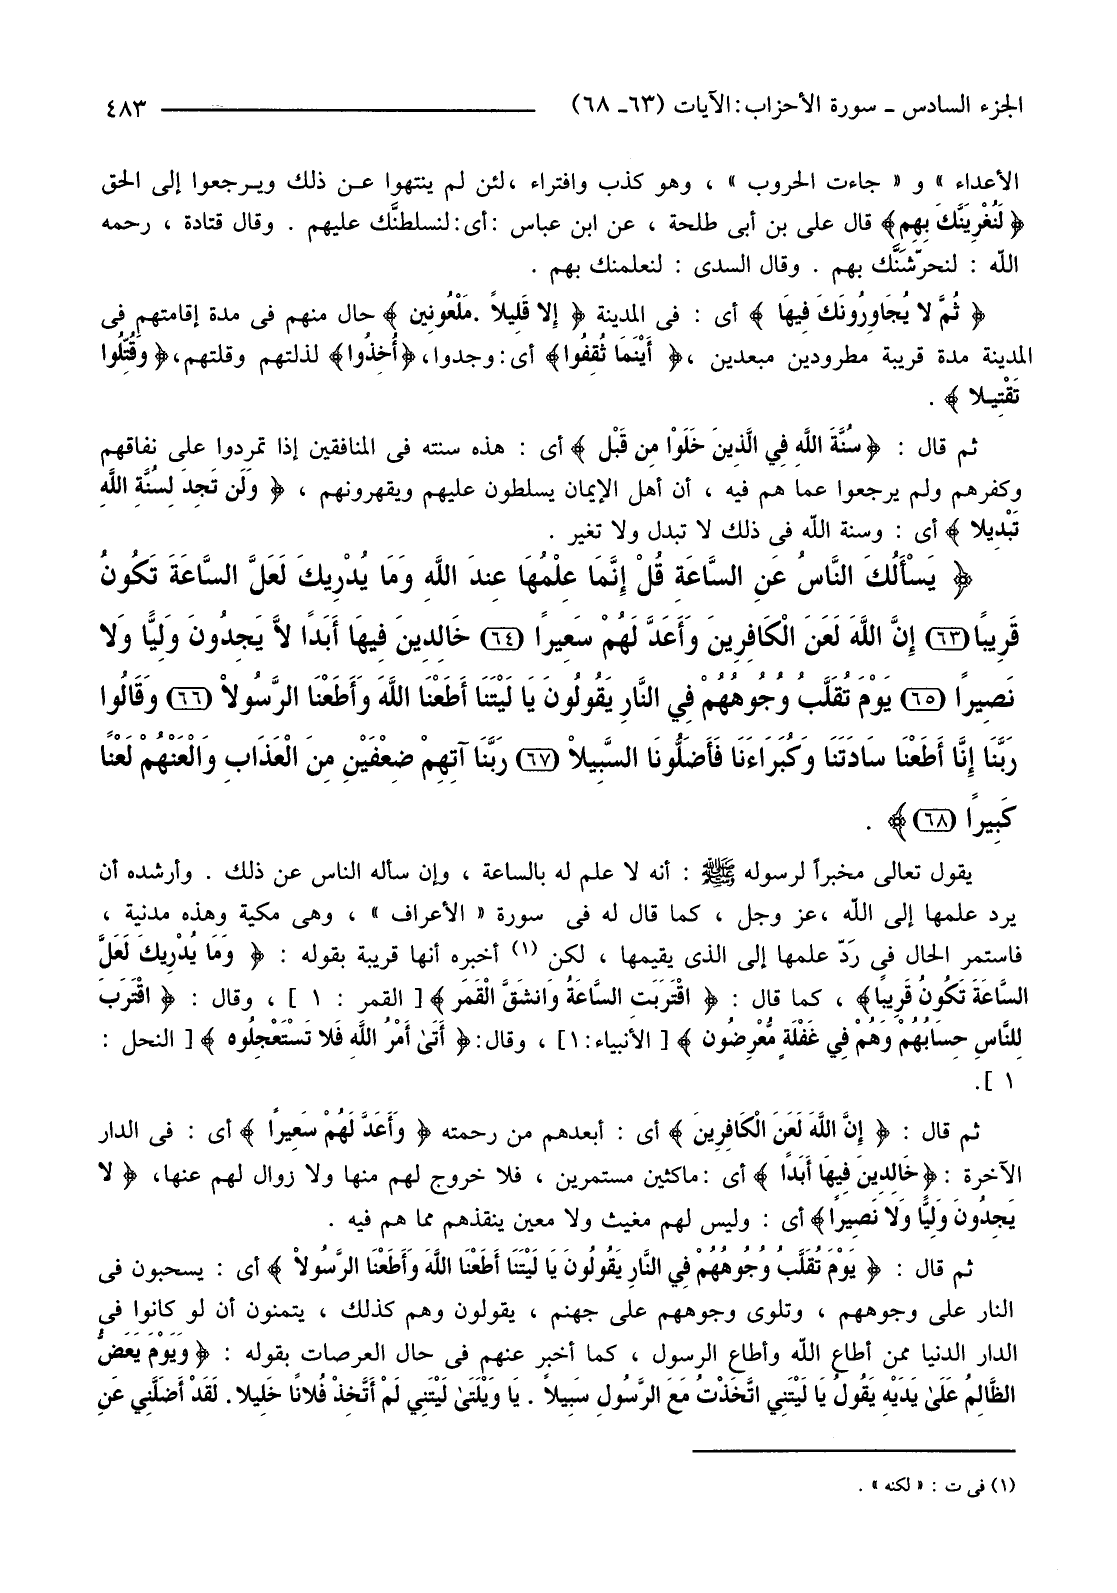 الجزء السادس ـ سورة الأحزاب: الآيات (٦٣ـ ٦٨) ٤٨٣
الأعداء » و « جاءت الحروب » ، وهو كذب وافتراء ،لئن لم ينتهوا عـن ذلك ويـرجعوا إلى الحق
﴿ لَنُغْرِيَنَّكَ بِهِم﴾ قال على بن أبى طلحة ، عن ابن عباس :أى:لنسلطنَّك عليهم . وقال قتادة ، رحمه
الله : لنحرّشَنَّك بهم . وقال السدى : لنعلمنك بهم .
﴿ ثُمَّ لا يُجَاوِرُونَكَ فِيهَا ﴾ أى : فى المدينة ﴿ إِلا قَلِيلاً .مَلْعُونِين ﴾ حال منهم فى مدة إقامتهم فى
المدينة مدة قريبة مطرودين مبعدين ،﴿ أَيْنَمَا ثُقِفُوا﴾ أى:وجدوا،﴿أُخِذُوا﴾ لذلتهم وقلتهم،﴿ وَقُتِّلُوا
تَقْتِيـلا ﴾ .
ثم قال : ﴿ سُنَّةَ اللَّهِ فِي الَّذِينَ خَلَوْا مِن قَبْل ﴾ أى : هذه سنته فى المنافقين إذا تمردوا على نفاقهم
وكفرهم ولم يرجعوا عما هم فيه ، أن أهل الإيمان يسلطون عليهم ويقهرونهم ، ﴿ وَلَن تَجِدَ لِسُنَّةِ اللَّهِ
تَبْدِيلا ﴾ أى : وسنة الله فى ذلك لا تبدل ولا تغير .
﴿ يَسْأَلُكَ النَّاسُ عَنِ السَّاعَةِ قُلْ إِنَّمَا عِلْمُهَا عِندَ اللَّهِ وَمَا يُدْرِيكَ لَعَلَّ السَّاعَةَ تَكُونُ
قَرِيبًا (٦٣) إِنَّ اللَّهَ لَعَنَ الْكَافِرِينَ وَأَعَدَّ لَهُمْ سَعِيراً (٦٤) خَالِدِينَ فِيهَا أَبَدًا لاَّ يَجِدُونَ وَلِيًّا وَلا
نَصِيراً (٦٥) يَوْمَ تُقَلَّبُ وُجُوهُهُمْ فِي النَّارِ يَقُولُونَ يَا لَيْتَنَا أَطَعْنَا اللَّهَ وَأَطَعْنَا الرَّسُولاْ (٦٦) وَقَالُوا
رَبَّنَا إِنَّا أَطَعْنَا سَادَتَنَا وَكُبَرَاءَنَا فَأَضَلُّونَا السَّبِيلاْ (٦٧) رَبَّنَا آتِهِمْ ضِعْفَيْنِ مِنَ الْعَذَابِ وَالْعَنْهُمْ لَعْنًا
كَبِيراً (٦٨) ﴾ .
يقول تعالى مخبراً لرسوله ﷺ : أنه لا علم له بالساعة ، وإن سأله الناس عن ذلك . وأرشده أن
يرد علمها إلى الله ،عز وجل ، كما قال له فى سورة « الأعراف » ، وهى مكية وهذه مدنية ،
فاستمر الحال فى رَدّ علمها إلى الذى يقيمها ، لكن (١) أخبره أنها قريبة بقوله : ﴿ وَمَا يُدْرِيكَ لَعَلَّ
السَّاعَةَ تَكُونُ قَرِيبًا﴾ ، كما قال : ﴿ اقْتَرَبَتِ السَّاعَةُ وَانشَقَّ الْقَمَر ﴾[ القمر : ١ ] ، وقال : ﴿ اقْتَرَبَ
لِلنَّاسِ حِسَابُهُمْ وَهُمْ فِي غَفْلَةٍ مُّعْرِضُون ﴾ [ الأنبياء:١] ، وقال:﴿ أَتَىٰ أَمْرُ اللَّهِ فَلا تَسْتَعْجِلُوه ﴾[ النحل :
١ ].
ثم قال : ﴿ إِنَّ اللَّهَ لَعَنَ الْكَافِرِينَ ﴾ أى : أبعدهم من رحمته ﴿ وَأَعَدَّ لَهُمْ سَعِيراً ﴾ أى : فى الدار
الآخرة :﴿خَالِدِينَ فِيهَا أَبَدًا ﴾ أى :ماكثين مستمرين ، فلا خروج لهم منها ولا زوال لهم عنها، ﴿ لا
يَجِدُونَ وَلِيًّا وَلا نَصِيراً﴾ أى : وليس لهم مغيث ولا معين ينقذهم مما هم فيه .
ثم قال : ﴿ يَوْمَ تُقَلَّبُ وُجُوهُهُمْ فِي النَّارِ يَقُولُونَ يَا لَيْتَنَا أَطَعْنَا اللَّهَ وَأَطَعْنَا الرَّسُولاْ ﴾ أى : يسحبون فى
النار على وجوههم ، وتلوى وجوههم على جهنم ، يقولون وهم كذلك ، يتمنون أن لو كانوا فى
الدار الدنيا ممن أطاع الله وأطاع الرسول ، كما أخبر عنهم فى حال العرصات بقوله : ﴿ وَيَوْمَ يَعَضُّ
الظَّالِمُ عَلَىٰ يَدَيْهِ يَقُولُ يَا لَيْتَنِي اتَّخَذْتُ مَعَ الرَّسُولِ سَبِيلاً . يَا وَيْلَتَىٰ لَيْتَنِي لَمْ أَتَّخِذْ فُلانًا خَلِيلا. لَقَدْ أَضَلَّنِي عَنِ
(١) فى ت : « لكنه » .